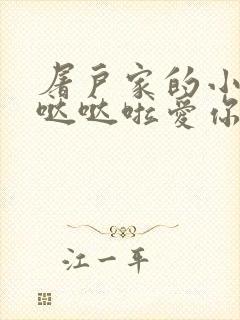 屠户家的小
哒哒啦爱你
江一平